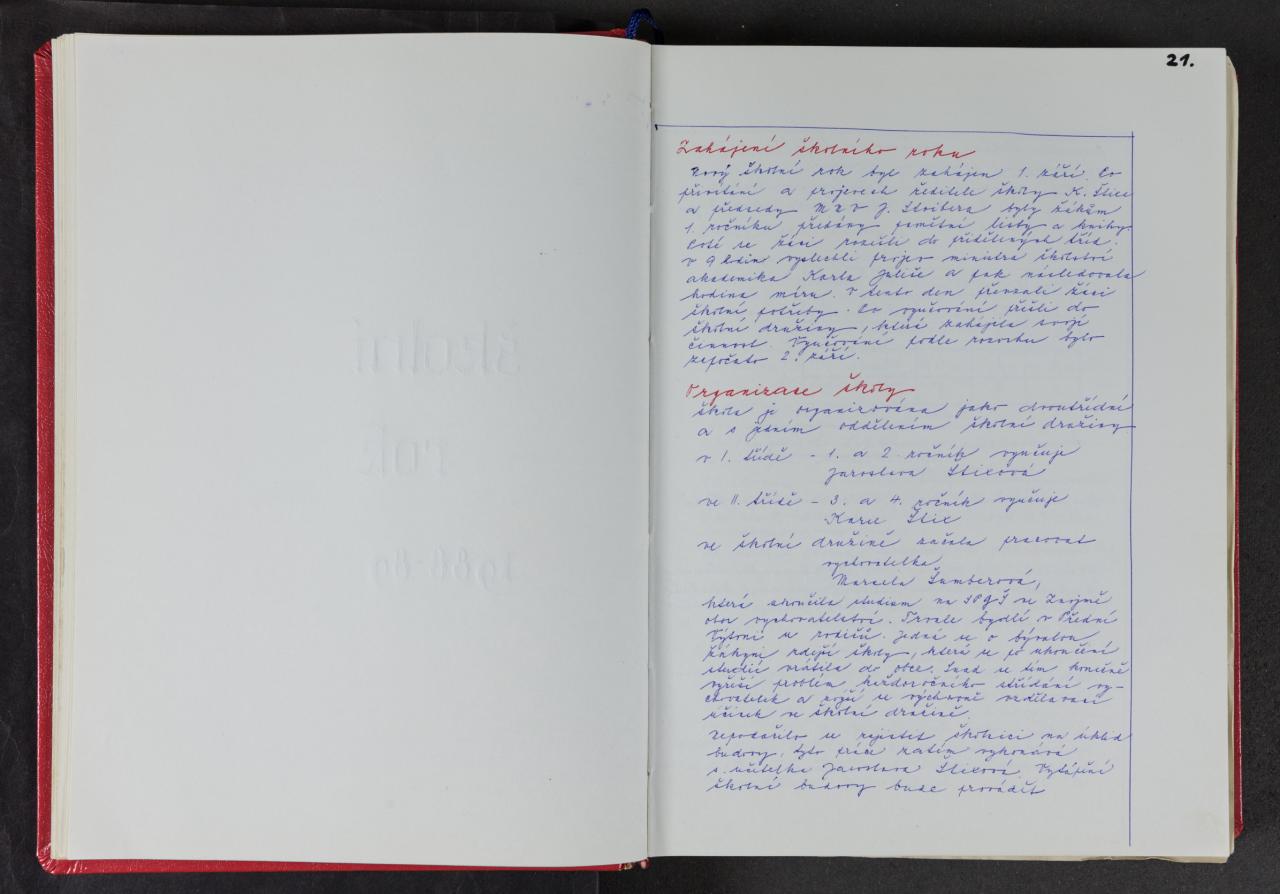 21.
Zahájení školního roku
Nový školní rok byl zahájen 1. září. Po
přivítání a projevech ředitele školy K. Štice
a předsedy MNV J. Stoibera byly žákům
1. ročníku předány pamětní listy a knihy.
Poté se žáci rozešli do přidělených tříd.
V 9 hodin vyslechli projev ministra školství
akademika Karla Juliše a pak následovala
hodina míru. V tento den převzali žáci
školní potřeby. Po vyučování přišli do
školní družiny, která zahájila svoji
činnost. Vyučování podle rozvrhu bylo
započato 2. září.
Organizace školy
Škola je organizována jako dvoutřídní
a s jedním oddělením školní družiny
v I. třídě - 1. a 2. ročník vyučuje
Jaroslava Štixová
ve II. třídě - 3. a 4. ročník vyučuje
Karel Štix
ve školní družině začala pracovat
vychovatelka
Marcela Šumberová,
která ukončila studium na SPGŠ ve Znojmě
obor vychovatelství. Trvale bydlí v Přední
Výtoni u rodičů. Jedná se o bývalou
žákyni zdejší školy, která se po ukončení
studií vrátila do obce. Snad se tím konečně
vyřeší problém každoročního střídání vy-
chovatelek a zvýší se výchovně vzdělávací
účinek ve školní družině.
Nepodařilo se zajistit školnici na úklid
budovy, tyto práce zatím vykonává
s. učitelka Jaroslava Štixová. Vytápění
školní budovy bude provádět
školní
rok
1988-89